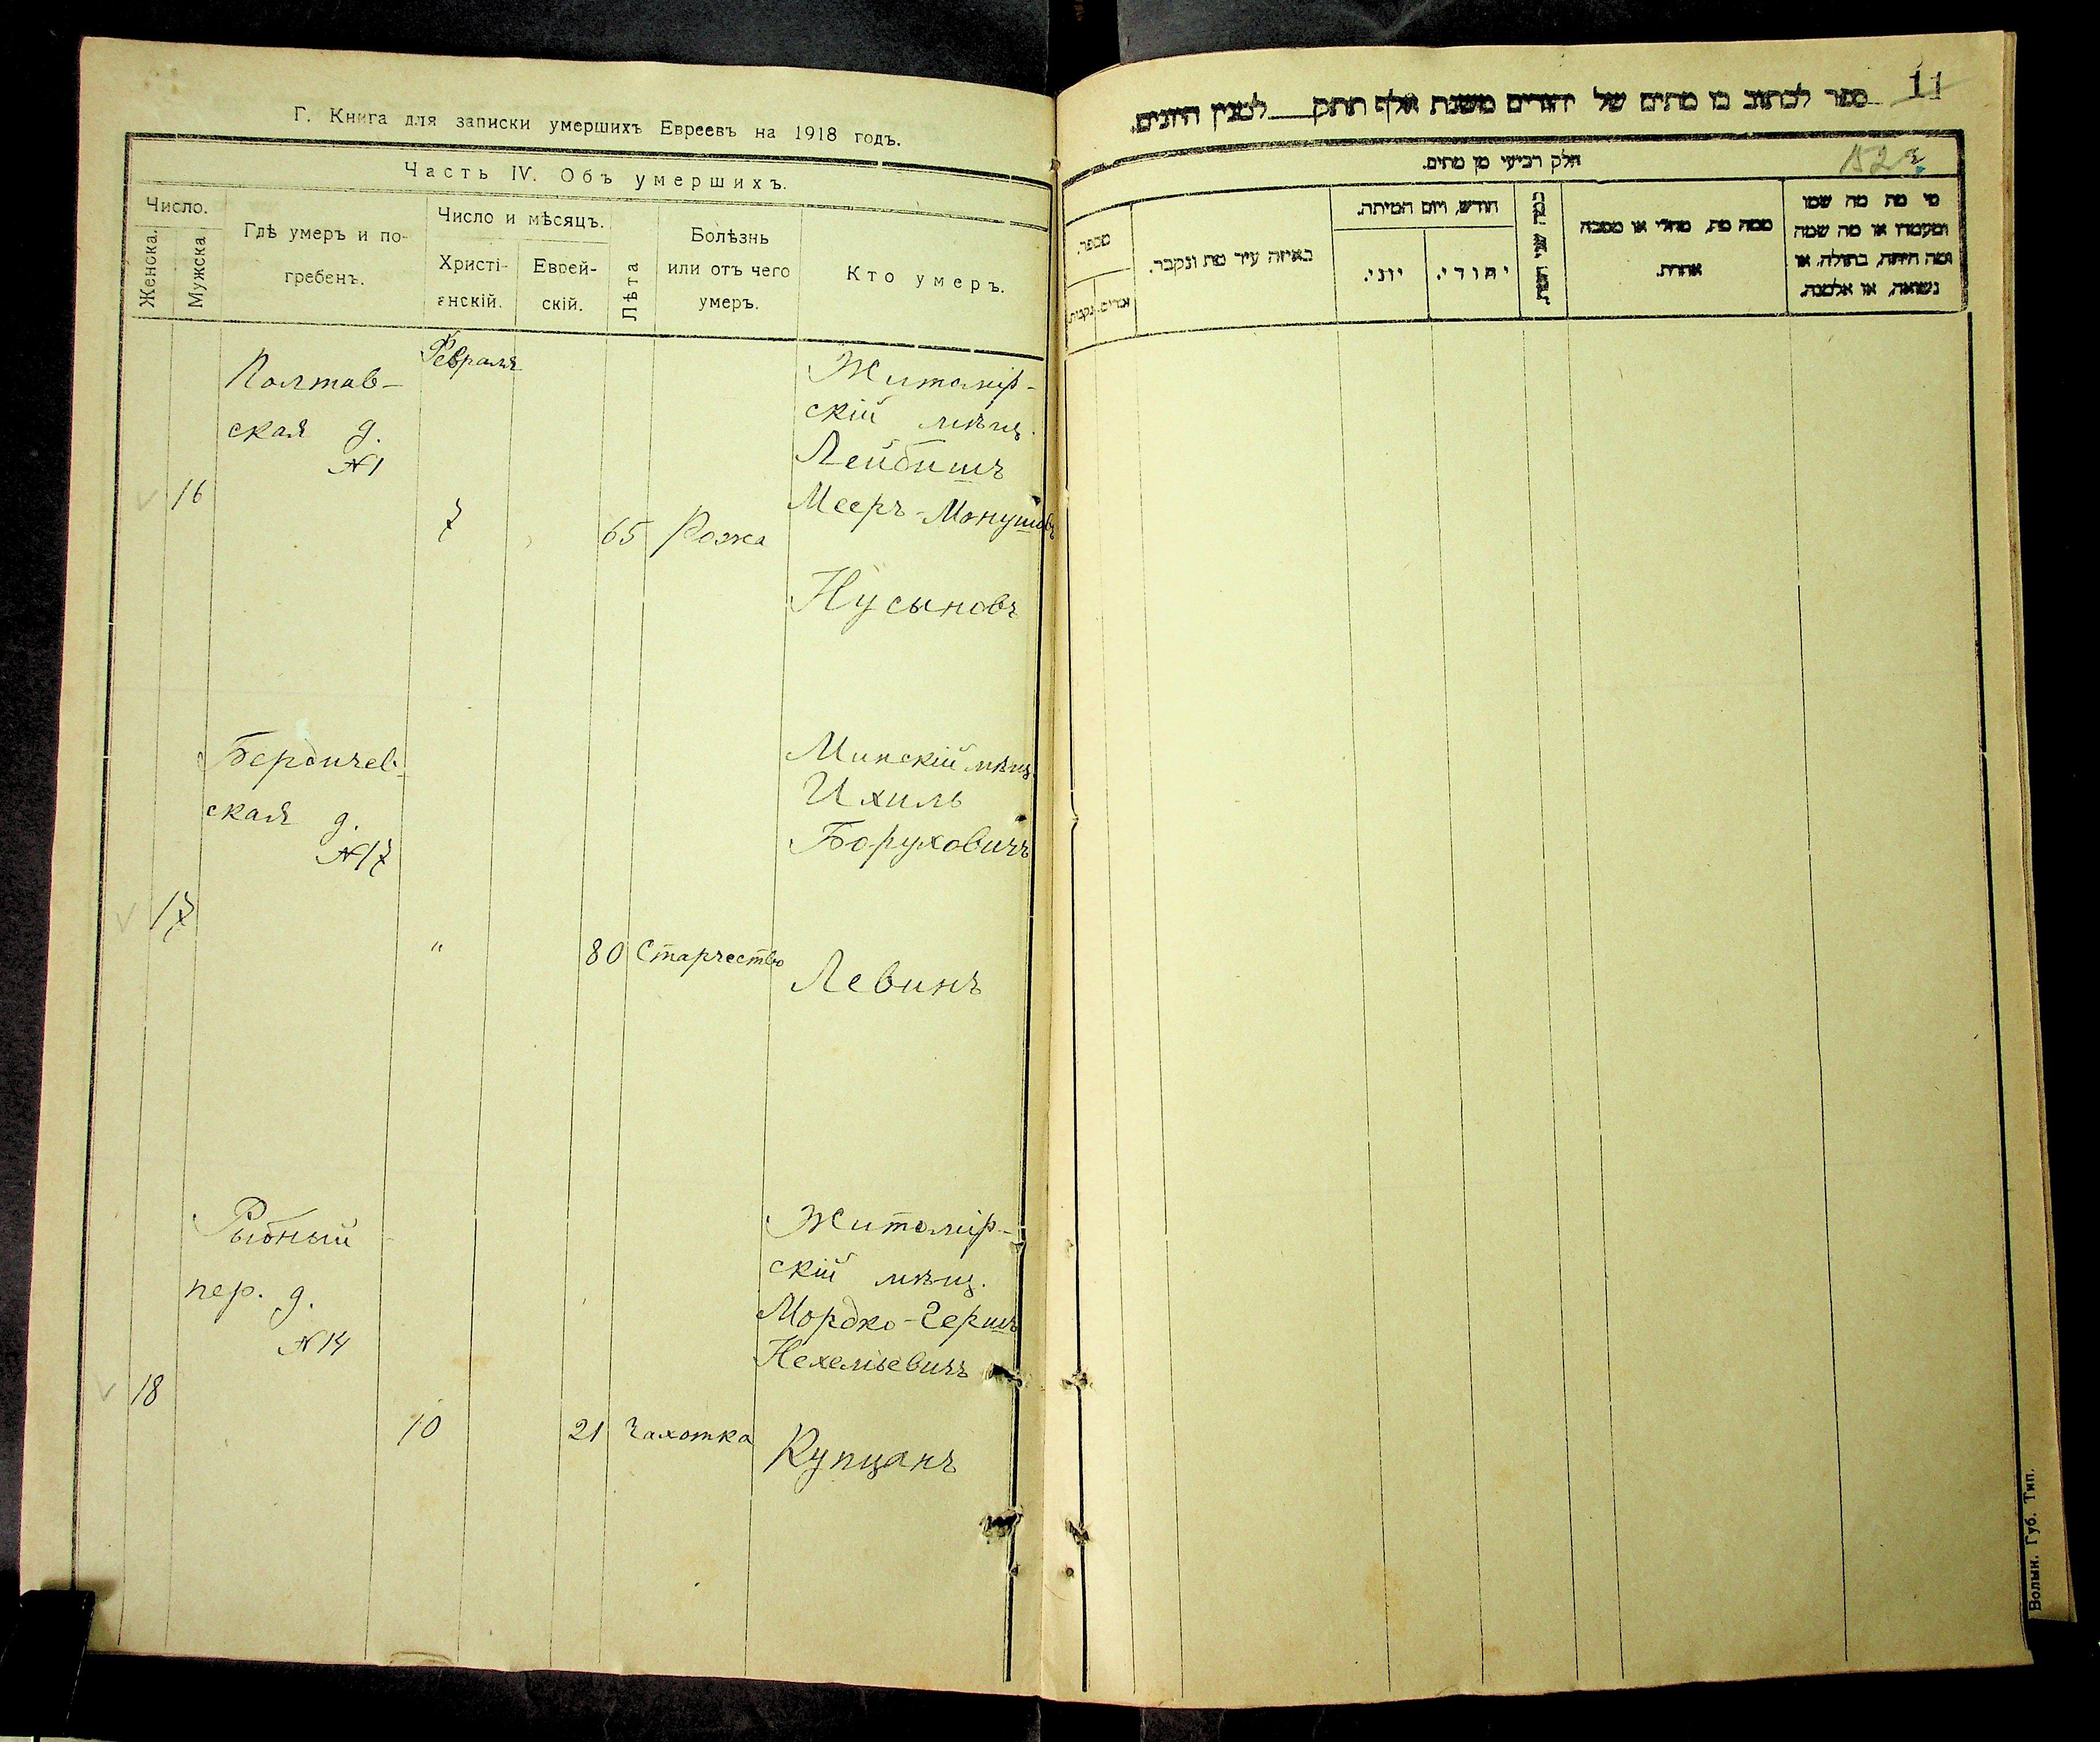 Г. Книга для записки умершихъ Евреевъ на 1918 годъ.
Часть IV. Объ умершихъ.
Число.
Женска.
Мужска
Гдѣ умеръ и по-
гребенъ.
Число и мѣсяцъ.
Христі-
анскій.
Еврей-
скій.
Лѣта
Болѣзнь
или отъ чего
умеръ.
Кто умеръ.
Февраля
Полтав-
ская д.
№1
16
7
65
Рожа
Житомір-
скій мѣщ.
Лейбишъ
Мееръ-Манушовъ
Нусыновъ
Бердичев-
ская д.
№17
17
"
80
Старчество
Минскій мѣщ.
Ихиль
Боруховичъ
Левинъ
Рыбный
пер. д.
№14
18
10
21
Чахотка
Житомір-
скій мѣщ.
Мордко-Гершъ
Нехемьевичъ
Купцанъ
11
ספר לכתוב בו מתים של יהודים משנת אלף תתק למנין היונים.
152
חלק רביעי מן מתים.
מספר.
זכרים.
נקבות.
באיזה עיר מת ונקבר.
חודש, ויום המיתה.
יוני.
יהודי.
כמה שני חייו.
ממה מת, מחלי או מסבה
אחרת.
מי מת מה שמו
ומעמדו או מה שמה
ומה היתה, בתולה, או
נשואה, או אלמנה.
Волын. Губ. Тип.